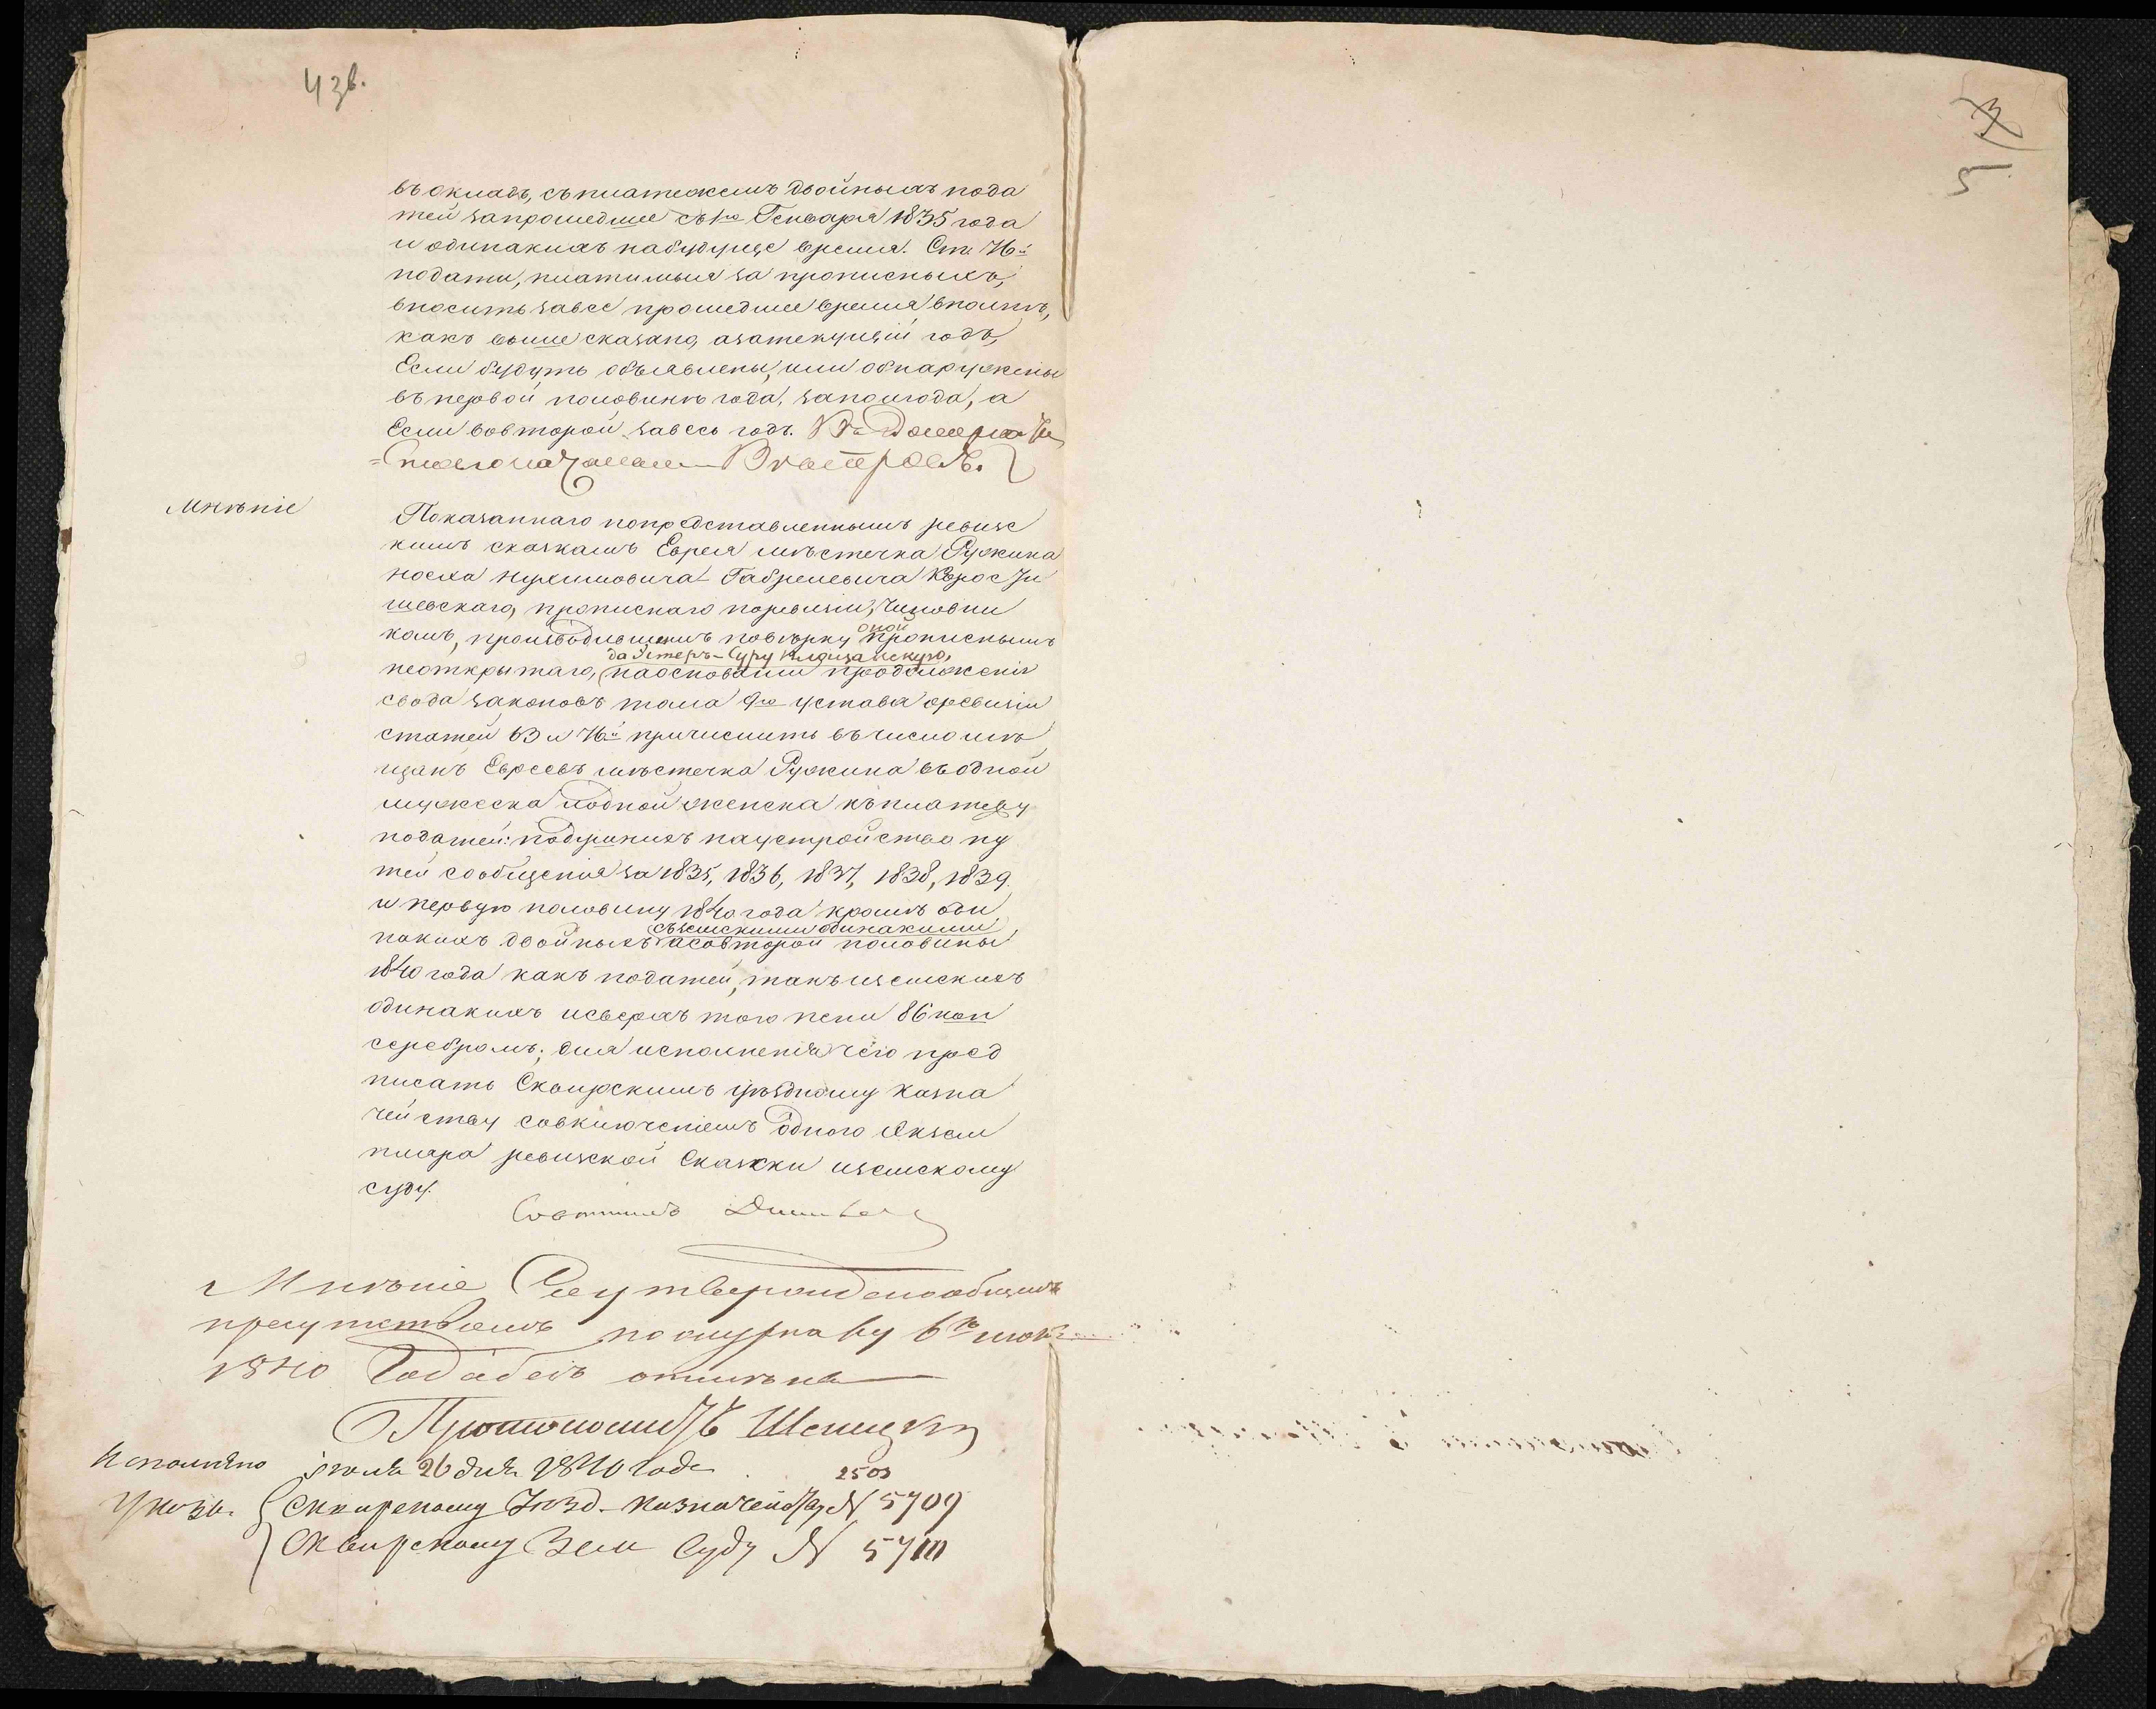 4 зв.
3
5
въ окладъ, съ платежемъ двойныхъ пода
тей запрошедшее съ 1го Генваря 1835 года
и одинакихъ набудущее время. Ст. 76й
подати, платимыя за прописныхъ,
вносить завсе прошедшее время вполнѣ,
какъ выше сказано, азатекущій годъ,
Если будутъ объявлены, или обнаружены
въ первой половинѣ года, заполгода, а
Если вовторой завесь годъ.
Мнѣніе
Показаннаго попредставленнымъ ревизс
кимъ сказкамъ Еврея мѣстечка Ружина
Нухимовича Габрилевича
шевскаго, прописнаго поревизіи, Чиновни
комъ, производившимъ повѣрку оной прописнымъ
да Эстеръ-Суру
неоткрытаго, наосновании продолженія
свода законовъ тома 9го устава оревизіи
статей 63 и 76й причислить въ число мѣ
щанъ Евреевъ мѣстечка Ружина въ одной
мужеска иодной женска къ платежу
податей: подушныхъ наустройство пу
тей сообщенія за 1835, 1836, 1837, 1838, 1839.
и первую половину 1840 года кромѣ оди
съземскими одинакими
накихъ двойныхъ асовторой половины
1840 года какъ податей, такъ иземскихъ
одинакихъ исверхъ того пени 86 коп
серебромъ; для исполненія чего пред
писать Сквирскимъ уѣздному Казна
чейству совключеніемъ одного Экзем
пляра ревизской Сказки иземскому
суду.
Совѣтникъ
Мнѣніе Сіе утверждено общимъ
присутствіемъ пожурналу 6го
1840 Года безъ отмѣны
Исполнено іюля 26 дня 1840 года
2503
Указы. Сквирскому Уѣзд. казначейству N 5709
Сквирскому Зем Суду N 5710